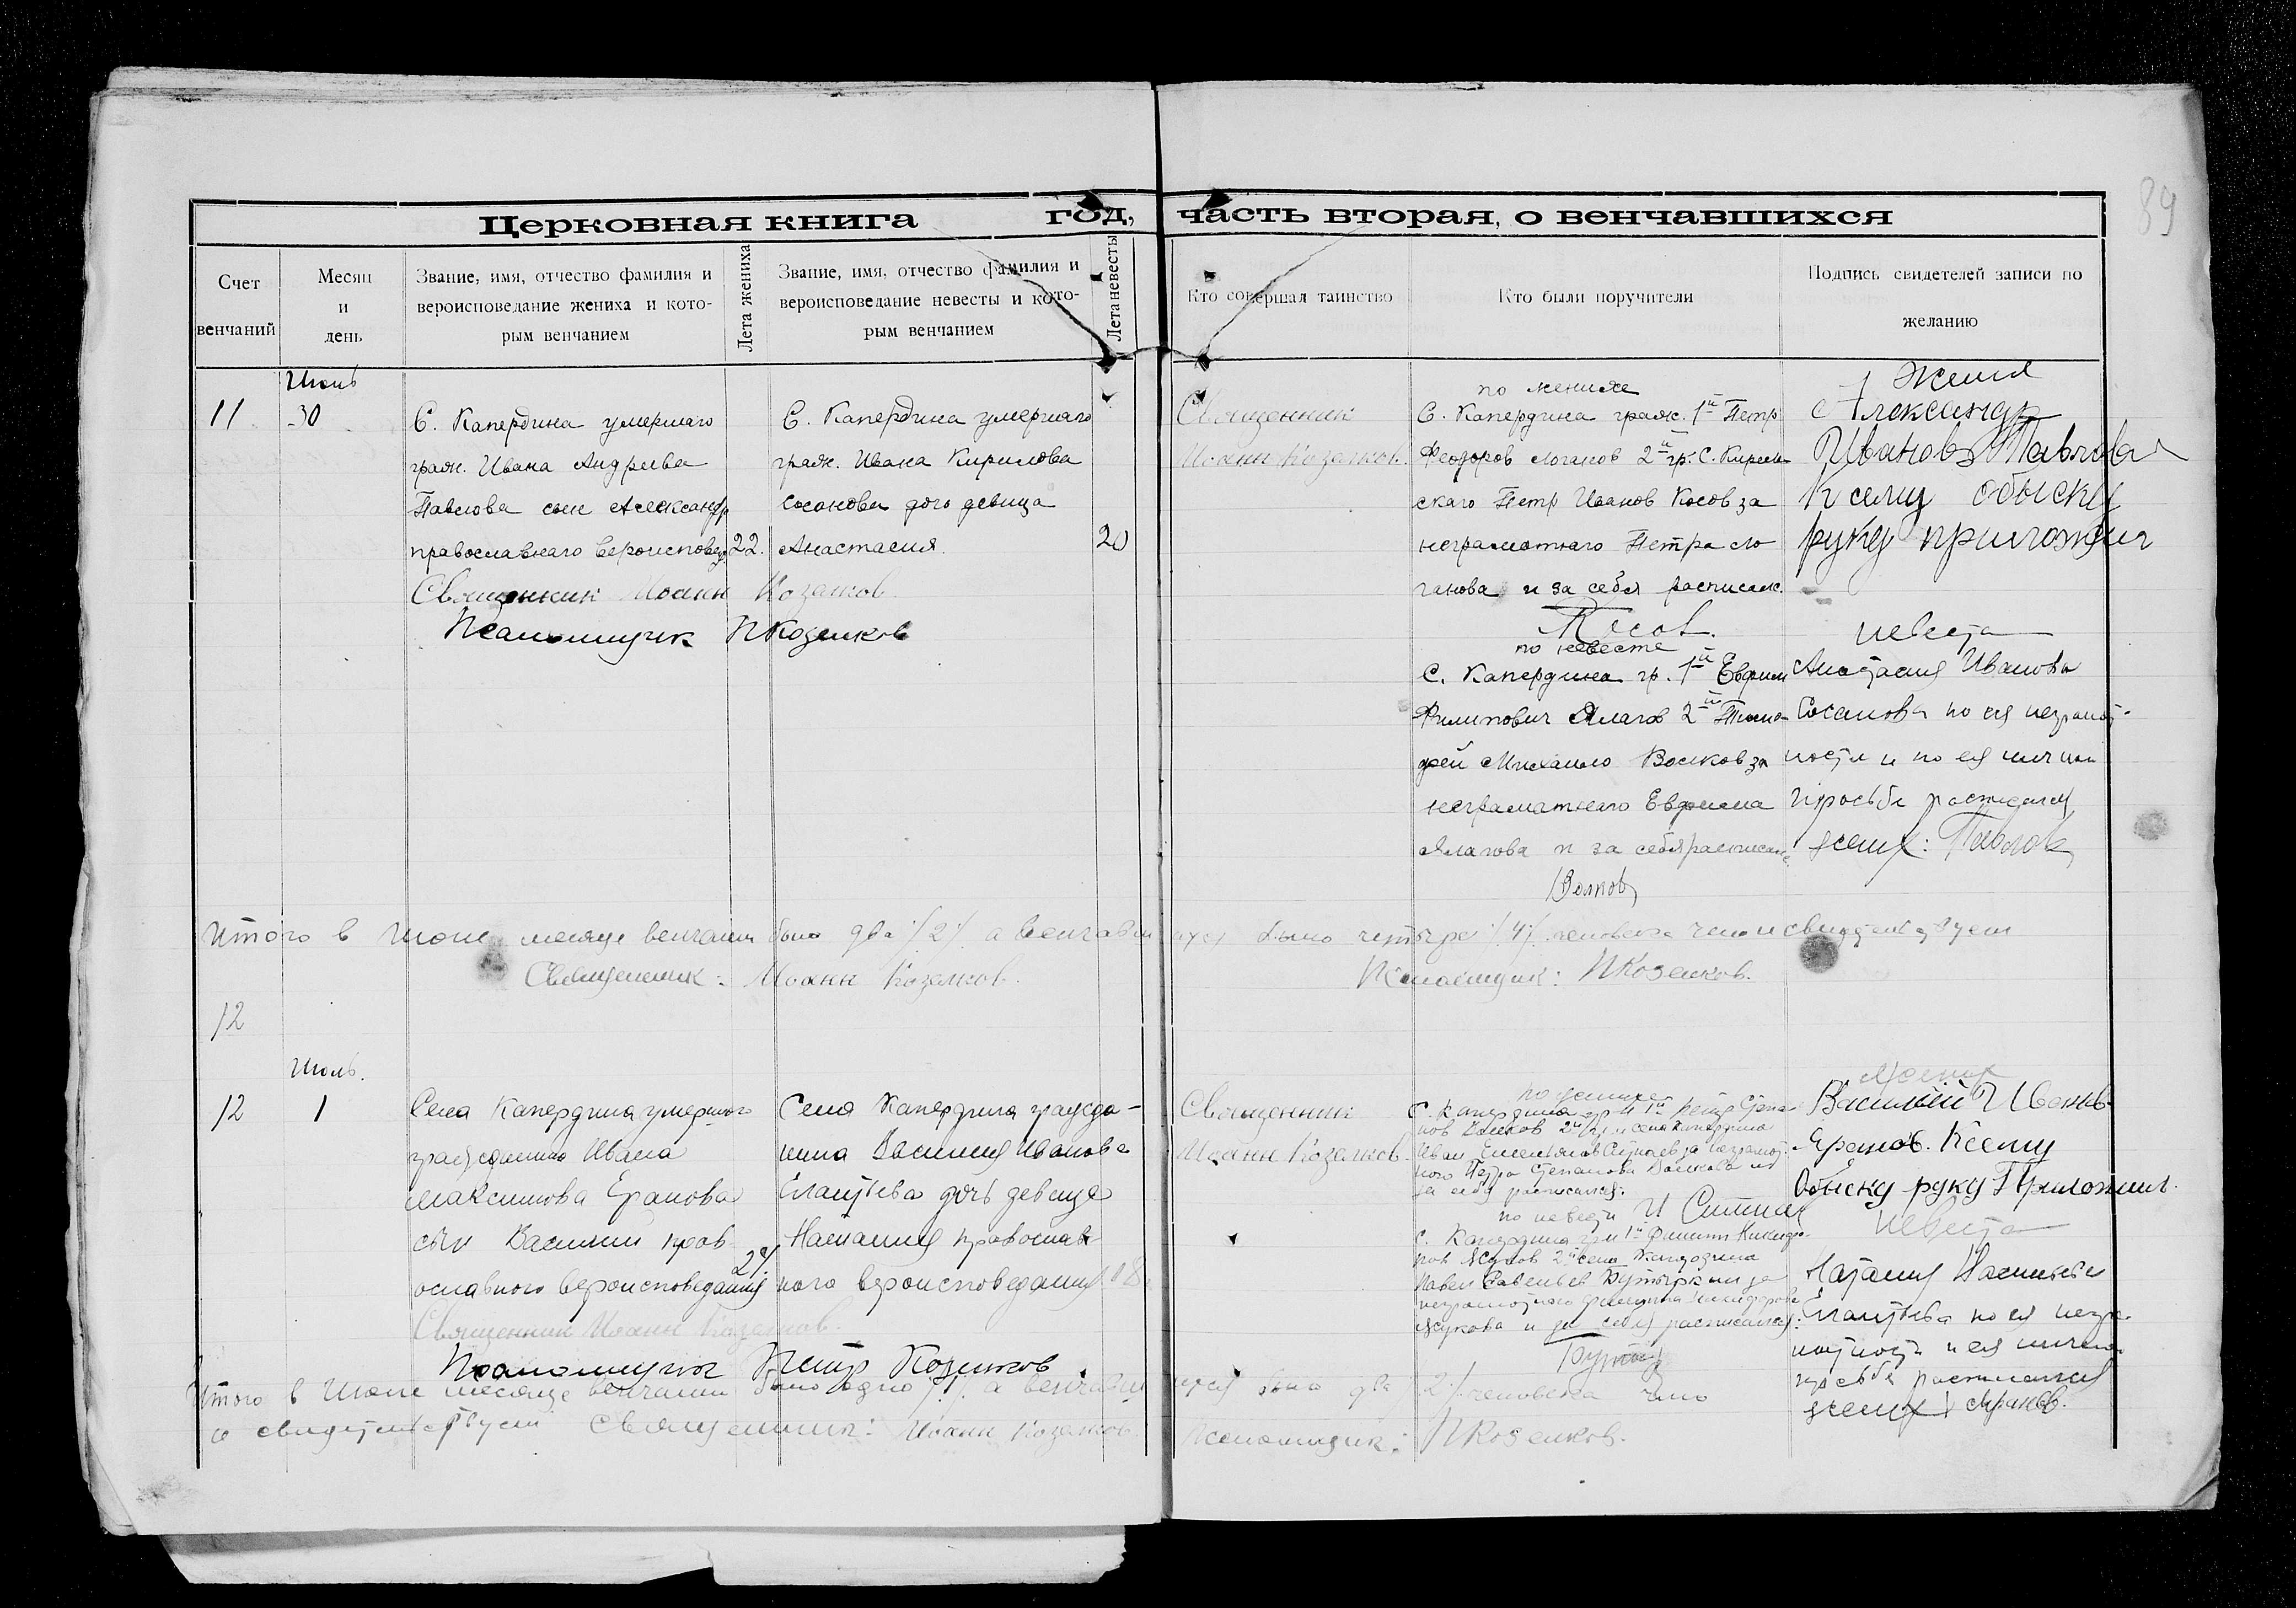 89
Церковная книга год, часть вторая, о венчавшихся
Счет венчаний
Месяц и день
Звание, имя, отчество фамилия и вероисповедание жениха и кото-рым венчанием
Лета жениха
Звание, имя, отчество фамилия и вероисповедание невесты и кото-рым венчанием
Лета невесты
Кто совершал таинство
Кто были поручители
Подпись свидетелей записи по желанию
11
Июнь
30
С. Капердина умершаго
граж. Ивана Андреева
Павлова сын Александр
православнаго вероисповед.
22.
Священник Иоанн Козалков
Псаломщик ПКозелков
С. Капердина умершаго
граж. Ивана Кирилова
Сосанова дочь девица
Анастасия.
20
Священник
Иоанн Козалков.
по женихе
С. Капердина граж. 1й Петр
Феодоров Логанов 2й гр. С.
скаго Петр Иванов Косов за
неграмотнаго Петра Ло
ганова и за себя расписалс.
Косов.
по невесте
С. Капердина гр. 1й Евфим
Филипович Алагов 2й
фей Михаило Волков за
неграмотнаго Евфима
Алагова и за себя расписалс
Волков
Жених
Александр
Иванов Павлов
К сему обыску
руку приложил
невеста
Анастасия Иванова
Сосанова по ея неграмот-
ности и по ея личной
просьбе расписался
жених: Павлов
Итого в июне месяце венчании было два /2/ а венчавшихся было четыре /4/ человека чем и свидетельствуем
Священник: Иоанн Козалков. Псаломщик: ПКозелков.
12
Июль.
12
1
Села Капердина умершаго
гражданина Ивана
Максимова Ерапова
сын Василий прав
ославного вероисповедания
Священник Иоанн Козалков.
Псаломщик Петр Козелков
Села Капердина гражда-
нина Василия Иванова
Елантьева дочь девица
Наталия православ
ного вероисповедания
18
Священник
Иоанн Козалков.
по женихе
С. Капердина гр-н 1й Петр Степа-
нов Волков 2й гр-н села Капердина
Иван Емельянов Ситнов за неграмот
ного Петра Степанова Волкова и
за себя расписался:
И Ситнов
по невесте
С. Капердина гр-н 1й Филипп Никифо-
ров Жуков 2й села Капердина
Павел Савельев Бутыркин за
неграмотного Филиппа Никифорова
Жукова и за себя расписался:
Жених
Василий Иванов
Ерапов. К сему
Обыску руку Приложил.
невеста
Наталия Васильева
Елантьева по ея негра-
мотности и ея личной
просьбе расписался
жених Ерапов.
Итого в июле месяце венчании было одно /1/ а венчавшихся было два /2/ человека чем
и свидетельствуем Священник: Иоанн Козалков. Псаломщик: ПКозелков.